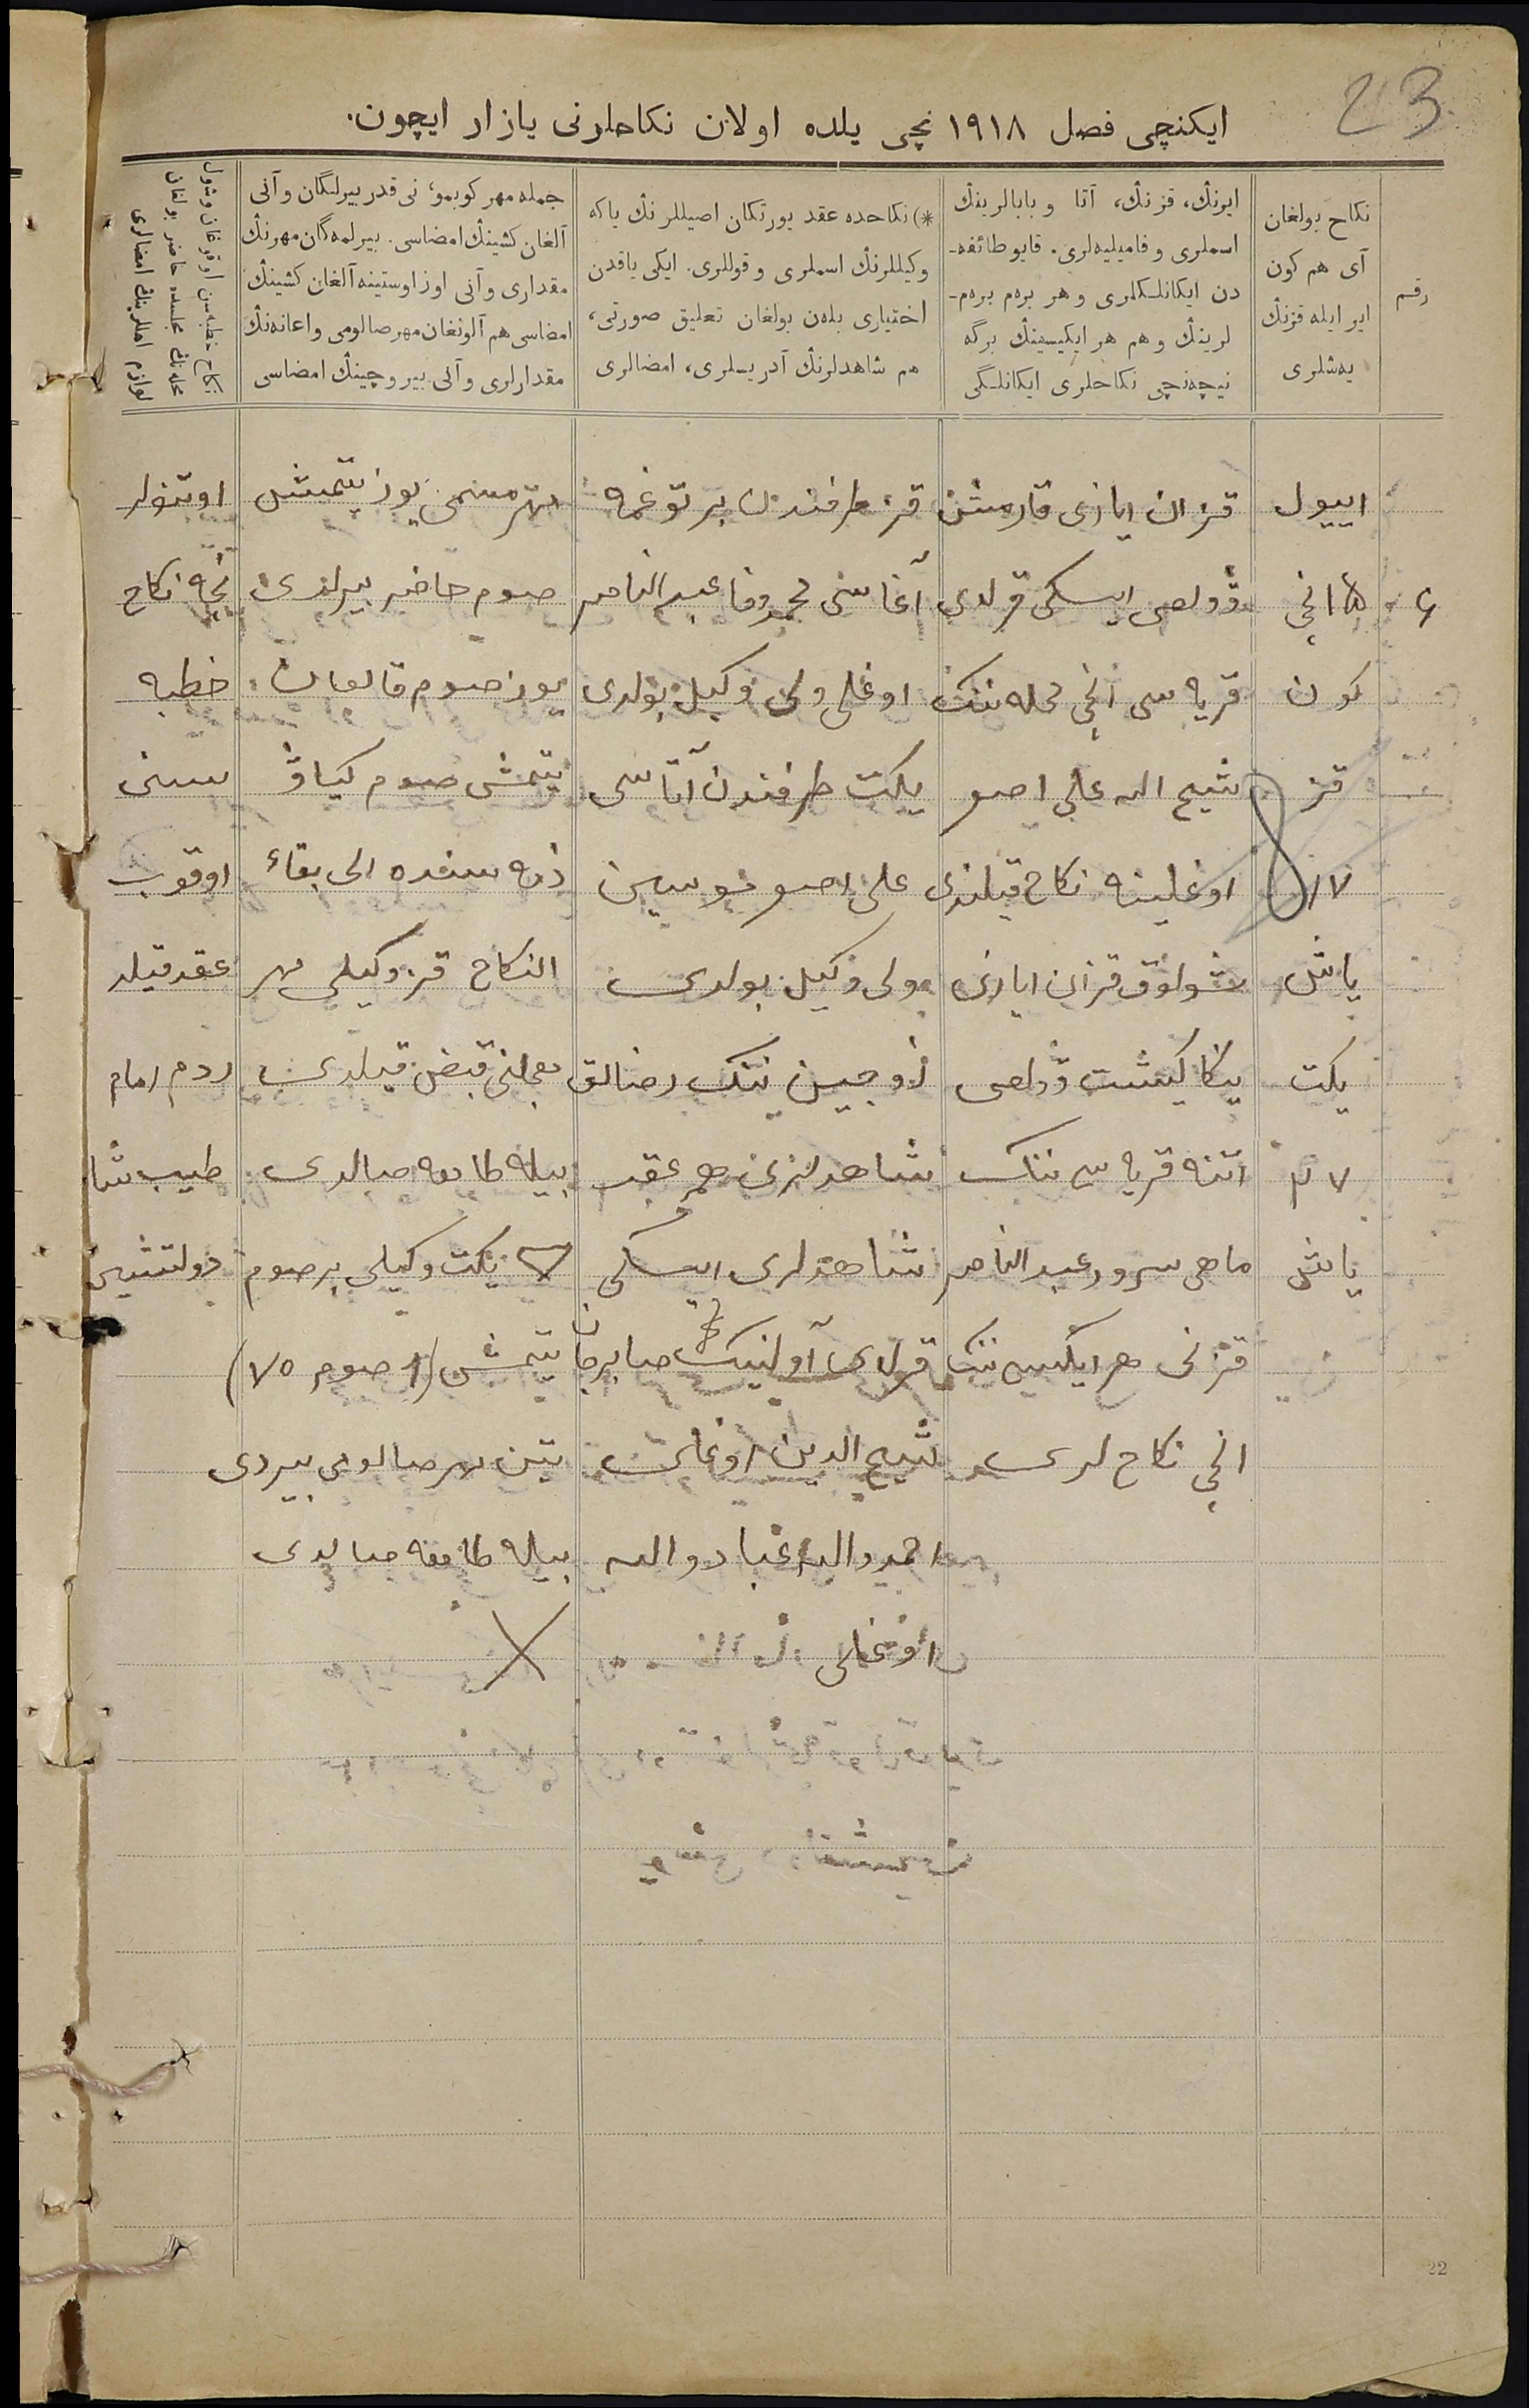 23
ایکنچی فصل ۱۹۱۸ نچی یلده اولان نکاحلرنی یازار ایچون.
رقم
نکاح بولغان
آی هم کون
ایر ایله قزنڭ
یەشلری
ایرنڭ، قزنڭ، آتا و بابالرینڭ
اسملری و فامیلیەلری. قایو طائفه-
دن ایکانلکلری و هر برەم برەم-
لرینڭ و هم هر ایکیسینڭ برگه
نیچەنچی نکاحلری ایکانلگی
*) نکاحده عقد یورتکان اصیللرنڭ یاکه
وکیللرنڭ اسملری و قوللری. ایکی یاقدن
اختیاری بلەن بولغان تعلیق صورتی،
هم شاهدلرنڭ آدریسلری، امضالری
جمله مهر کوبمو، نی قدر بیرلگان و آنی
آلغان کشینڭ امضاسی. بیرلمەگان مهرنڭ
مقداری و آنی اوز اوستینه آلغان کشینڭ
امضاسی هم آلونغان مهر صالومی و اعانەنڭ
مقدارلری و آنی بیروچینڭ امضاسی
نکاح خطبەسن اوقوغان و شول
محلەنڭ مجلسده حاضر بولغان
لوازم اهللرینڭ امضالری
۶
اییول
۱۵ انچی
کون
قز
۱۷
یاش
یکت
۲۷
یاش
قزان ایازی قارمش
وولصی ایسکی قرلای
قریه سی انچی محله ننک
شیح الله علی اصو
اوغلینه نکاح قیلندی
شولوق قزان ایازی
ینکا کیشت وولصی
اتنه قریه سی ننک
ماهی سرور عبد الناصر
قزنی هر ایکیسی ننک
انچی نکاح لری
قز طرفندن بر توغمه
آغاسی محمد وفا عبد الناصر
اوغلی ولی وکیل بولدی
یکت طرفندن آتاسی
علی اصو موسین
ولی وکیل بولدی
لاوجین ننک رضالق
شاهدلری هم عقد
شاهدلری ایسکی
قرلای آولینک صابرجان
شیح الدین اوغلی
احمد والله عبادوالله
اوغلی
مهر مسمی یوز یتمش
صوم حاضر بیرلدی
یوز صوم قالغان
یتمش صوم کیاو
ذمه سنده الی بقاء
النکاح قز وکیلی مهر
معجلنی قبض قیلدی
بیله طامغه صالدی
یکت وکیلی بر صوم
یتمش (۱ صوم ۷۵)
تین مهر صالومی بیردی
بیله طامغه صالدی
اوتنولر
نچه نکاح
خطبه
سنی
اوقوب
عقد قیلد
ردم امام
طیب شا
دولتشین
22